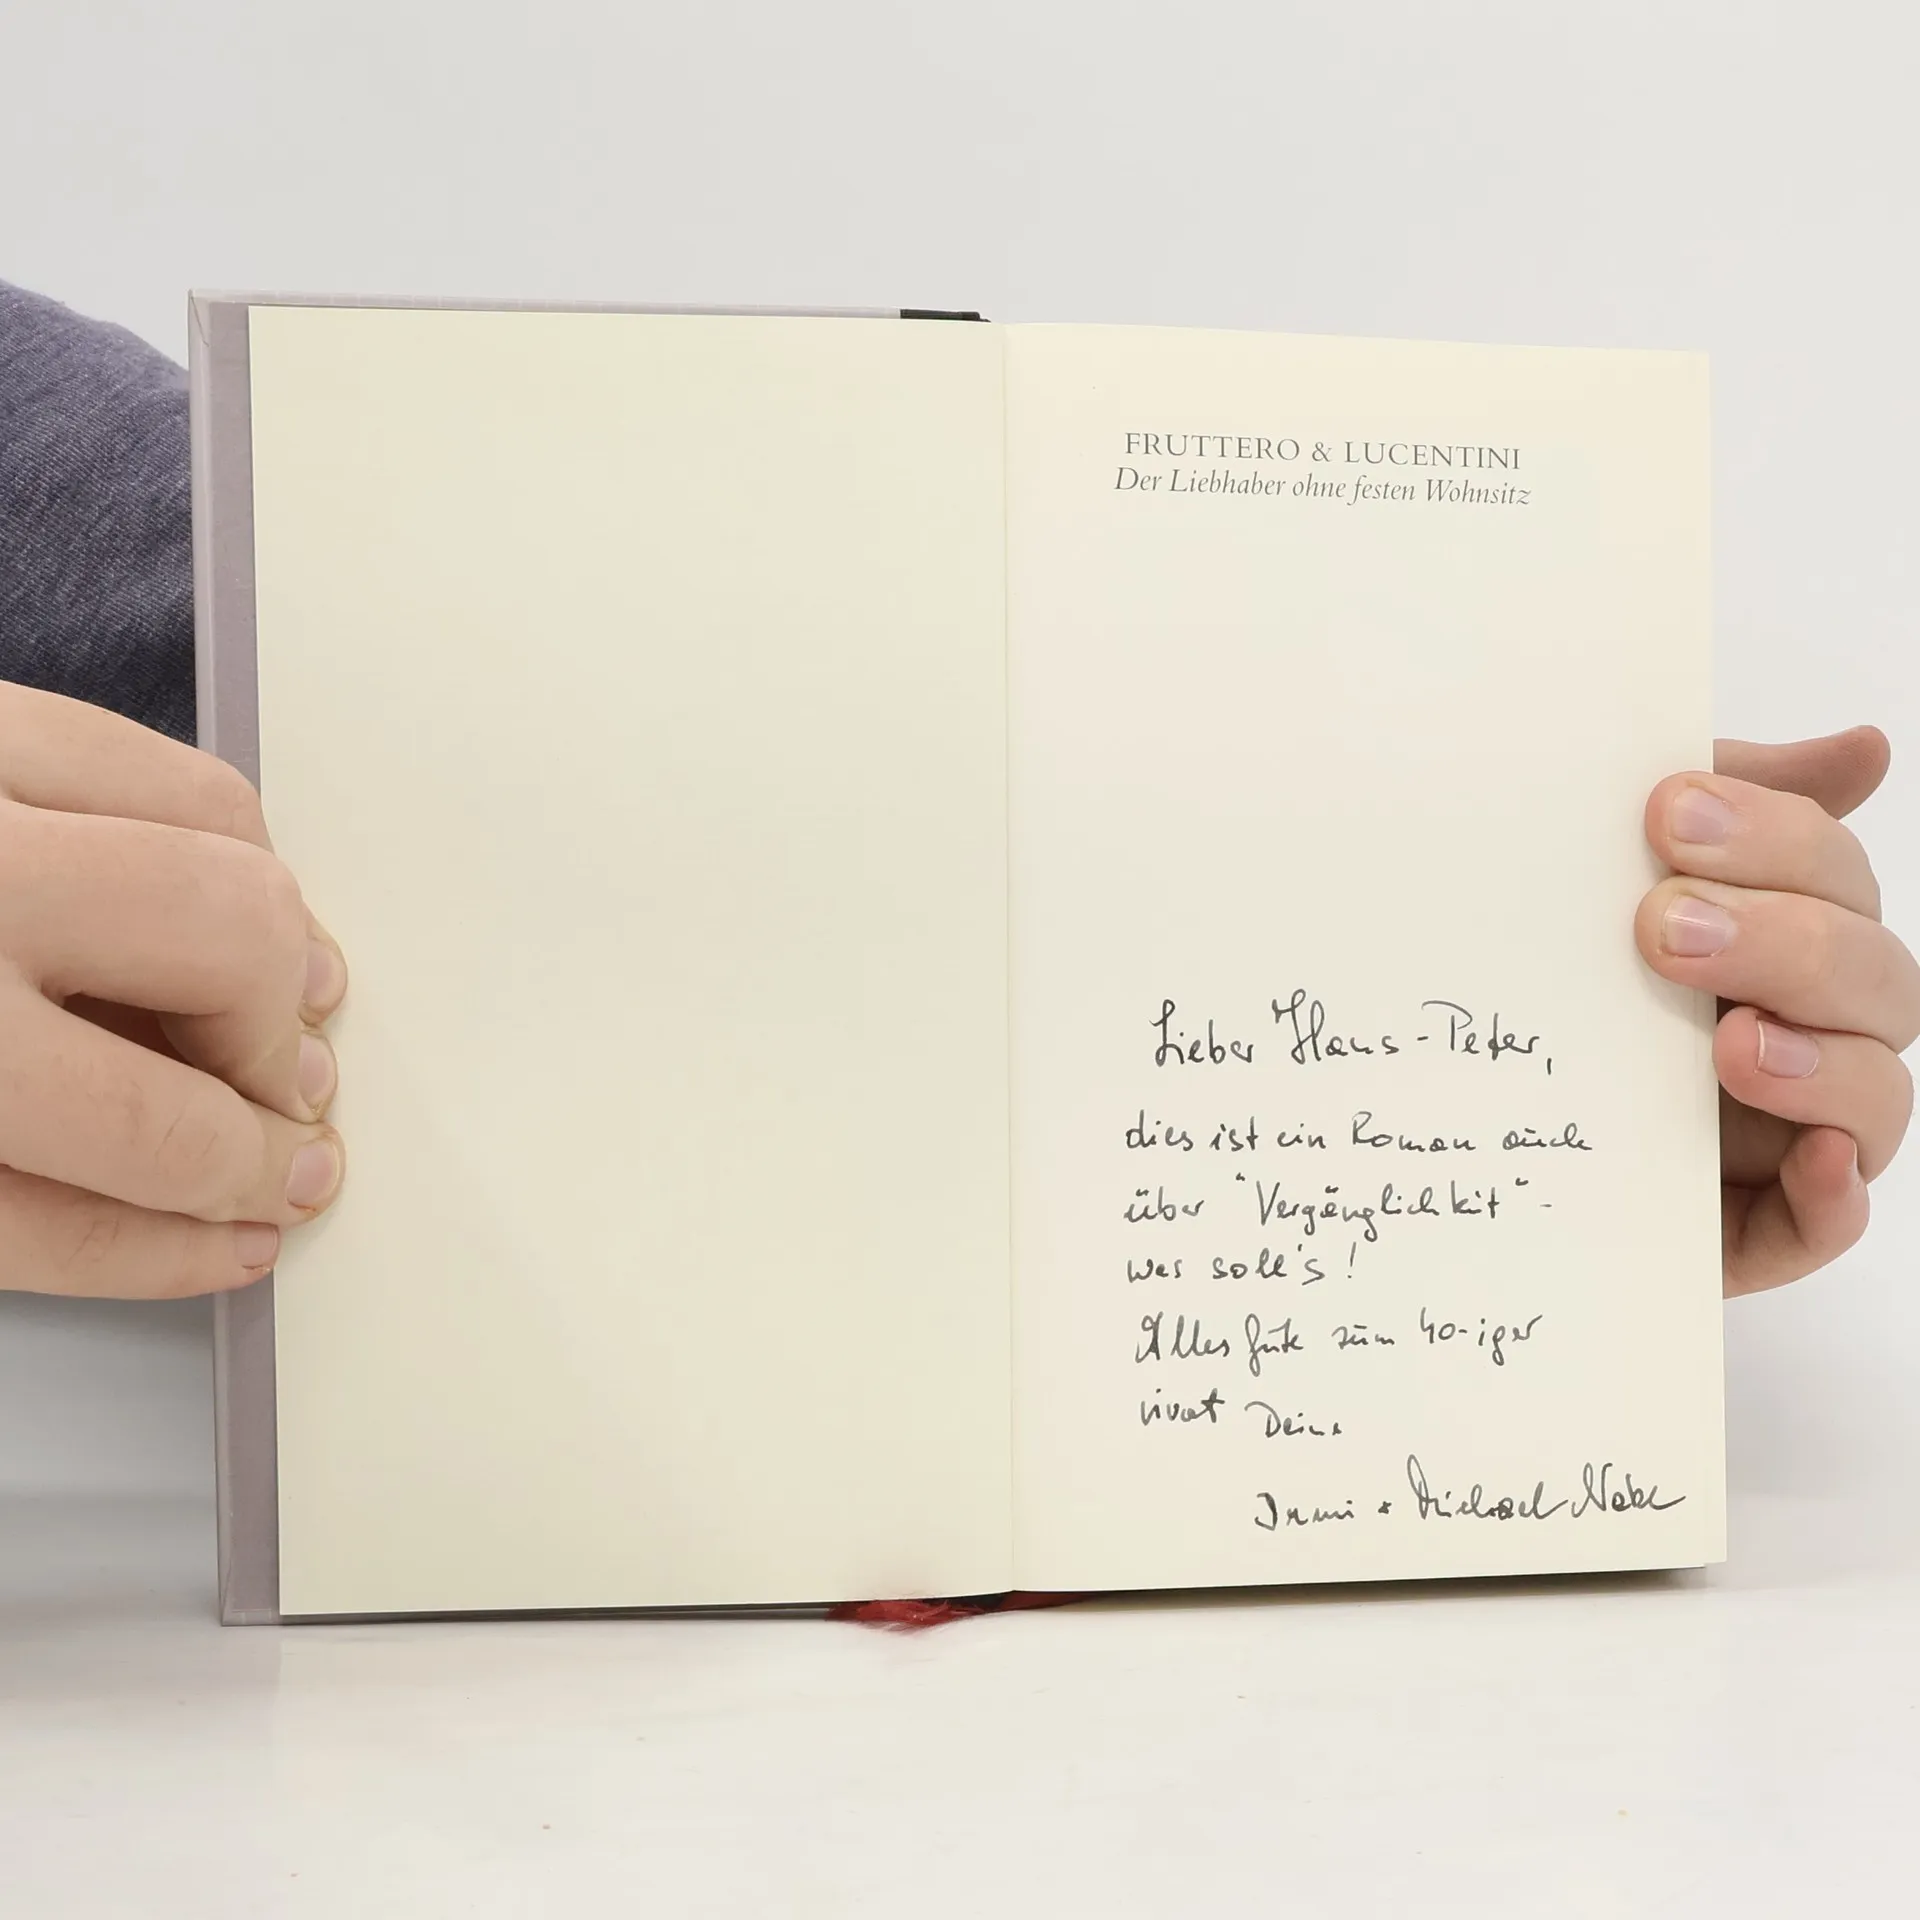 FRUTTERO & LUCENTINI
Der Liebhaber ohne festen Wohnsitz
Lieber Hans-Peter,
dies ist ein Roman auch
über "Vergänglichkeit" -
was soll's!
Alles Gute zum 40-iger
vivat Deine
Irmi + Michael